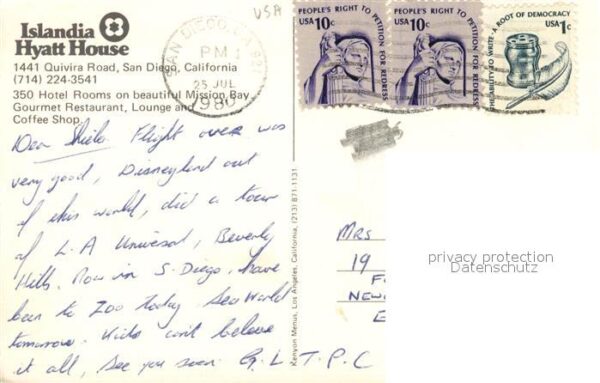 USA
Islandia
Hyatt House
1441 Quivira Road, San Diego, California
(714) 224-3541
350 Hotel Rooms on beautiful Mission Bay
Gourmet Restaurant, Lounge and
Coffee Shop.
SAN DIEGO, CA 921
PM
25 JUL
1980
PEOPLE'S RIGHT TO PETITION FOR REDRESS
USA 10c
PEOPLE'S RIGHT TO PETITION FOR REDRESS
USA 10c
THE ABILITY TO WRITE · A ROOT OF DEMOCRACY
USA 1c
Dear Sheila Flight over was
very good, Disneyland out
of this world, did a tour
of L-A Universal, Beverly
Hills. Now in S. Diego, have
been to Zoo today Sea World
tomorrow. Kids can't believe
it all, see you soon. G. L T. P. C
Kenyon Menus, Los Angeles, California, (213) 871-1131
MRS
19
F
NEW
E
privacy protection
Datenschutz